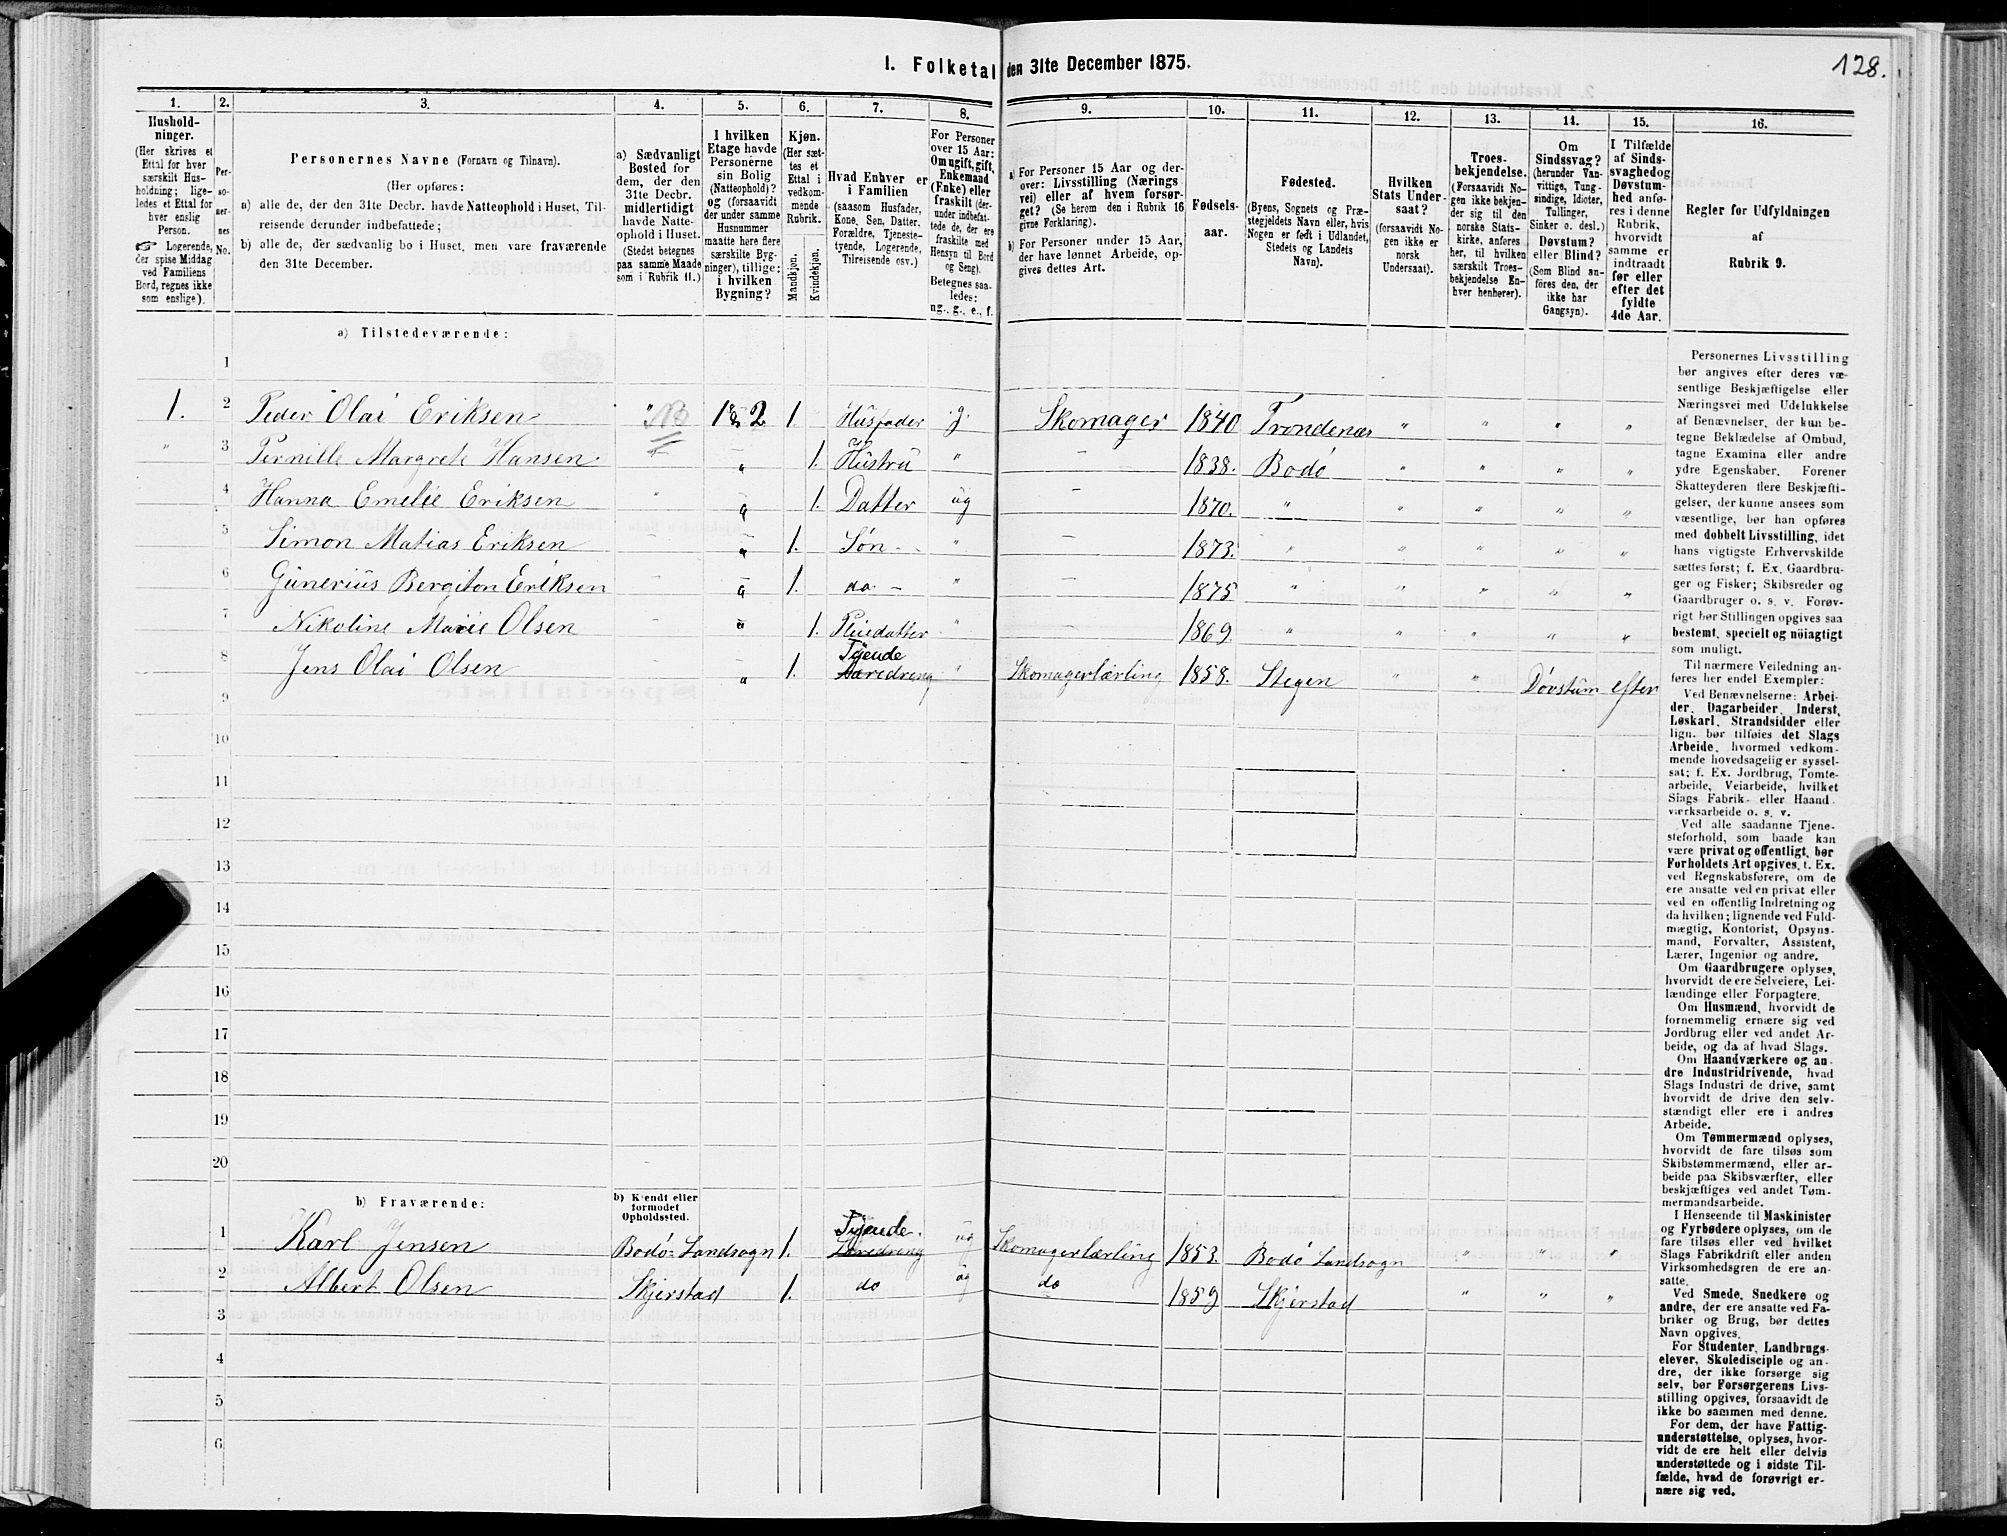 1. Folketal den 31te December 1875.
128.
1.
2.
3.
4.
5.
6.
7.
8.
9.
10.
11.
12.
13.
14.
15.
16.
Hushold-
ninger.
(Her skrives et
Ettal for hver
særskilt Hus-
holdning; lige-
ledes et Ettal for
hver enslig
Person.
☞ Logerende,
der spise Middag
ved Familiens
Bord, regnes ikke
som enslige).
Per-
so-
ner-
nes
No.
Personernes Navne (Fornavn og Tilnavn).
(Her opføres:
a) alle de, der den 31te Decbr. havde Natteophold i Huset, Til-
reisende derunder indbefattede;
b) alle de, der sædvanlig bo i Huset, men vare fraværende
den 31te December.
a) Sædvanligt
Bosted for
dem, der den
31te Decbr.
midlertidigt
havde Natte-
ophold i Huset.
(Stedet betegnes
paa samme Maade
som i Rubrik 11.)
I hvilken
Etage havde
Personerne
sin Bolig
(Natteophold)?
og (forsaavidt
der under samme
Husnummer
maatte høre flere
særskilte Byg-
ninger), tillige:
i hvilken
Bygning?
Kjøn.
(Her sæt-
tes et
Ettal i
vedkom-
mende
Rubrik.
Mandkjøn.
Kvindekjøn.
Hvad Enhver er
i Familien
(saasom Husfader,
Kone, Søn, Datter,
Forældre, Tjeneste-
tyende, Logerende,
Tilreisende osv.)
For Personer
over 15 Aar:
Om ugift, gift,
Enkemand
(Enke) eller
fraskilt (der-
under indbefat-
tede de, der ere
fraskilte med
Hensyn til Bord
og Seng).
Betegnes saa-
ledes:
ug., g., e., f.
a) For Personer 15 Aar og der-
over: Livsstilling (Nærings
vei) eller af hvem forsør-
get? (Se herom den i Rubrik 16
givne Forklaring).
b) For Personer under 15 Aar,
der have lønnet Arbeide, op-
gives dettes Art.
Fødsels-
aar.
Fødested.
(Byens, Sognets og Præ-
stegjeldets Navn eller, hvis
Nogen er født i Udlandet,
Stedets og Landets
Navn).
Hvilken
Stats Under-
saat?
(forsaavidt No-
gen ikke er
norsk
Undersaat).
Troes-
bekjendelse.
(Forsaavidt No-
gen ikke bekjen-
der sig til den
norske Stats-
kirke, anføres
her, til hvilken
særskilt Troes-
bekjendelse En-
hver henhører).
Om
Sindssvag?
(herunder Van-
vittige, Tung-
sindige, Idioter,
Tullinger,
Sinker o. desl.)
Døvstum?
eller Blind?
(Som Blind an-
føres den, der
ikke har
Gangsyn).
I Tilfælde
af Sinds-
svaghed og
Døvstum-
hed anfø-
res i denne
Rubrik,
hvorvidt
samme er
indtraadt
før eller
efter det
fyldte
4de Aar.
Regler for Udfyldningen
af
Rubrik 9.
a) Tilstedeværende:
1
1. 2 Peder Olai Eriksen " 1 & 2 1. Husfader g. Skomager 1840 Trondenæs " " " "
" 3 Pernille Margrete Hansen " 1. Hustru " – 1838. Bodø " " " "
4 Hanna Emelie Eriksen " " 1. Datter ug – 1870. " " " " "
5 Simon Matias Eriksen – " 1. Søn – " – 1873. " " " " "
6 Gunerius Bergiton Eriksen – " 1. do – " – 1875 " " " " "
7 Nikoline Marie Olsen " 1. Pleiedatter " – 1869. " " " " "
Tyende
8 Jens Olai Olsen – " 1. Læredreng " Skomagerlærling 1858. Stegen " " Døvstum efter
9
10
11
12
13
14
15
16
17
18
19
20
b) Fraværende:
b) Kjendt eller
formodet
Opholdssted.
Tyende
1 Karl Jensen Bodø Landsogn 1. Læredreng ug Skomagerlærling 1853. Bodø Landsogn " " "
2 Albert Olsen Skjerstad 1. do ug do 1859 Skjerstad " " "
3
4
5
6
Personernes Livsstilling
bør angives efter deres væ-
sentlige Beskjæftigelse eller
Næringsvei med Udelukkelse
af Benævnelser, der kun be-
tegne Beklædelse af Ombud,
tagne Examina eller andre
ydre Egenskaber. Forener
Skatteyderen flere Beskjæfti-
gelser, der kunne ansees som
væsentlige, bør han opføres
med dobbelt Livsstilling, idet
hans vigtigste Erhvervskilde
sættes først; f. Ex. Gaardbru-
ger og Fisker; Skibsreder og
Gaardbruger o. s. v. Forøv-
rigt bør Stillingen opgives saa
bestemt, specielt og nöiagtigt
som muligt.
Til nærmere Veiledning an-
føres her endel Exempler:
Ved Benævnelserne: Arbei-
der, Dagarbeider, Inderst,
Løskarl, Strandsidder eller
lign. bør tilføies det Slags
Arbeide, hvormed vedkom-
mende hovedsagelig er syssel-
sat; f. Ex. Jordbrug, Tomte-
arbeide, Veiarbeide, hvilket
Slags Fabrik- eller Haand
værksarbeide o. s. v.
Ved alle saadanne Tjene-
steforhold, som baade kan
være privat og offentligt, bør
Forholdets Art opgives, t. Ex.
ved Regnskabsførere, om de
ere ansatte ved en privat eller
ved en offentlig Indretning og
da hvilken; lignende ved Fuld-
mægtig, Kontorist, Opsyns-
mand, Forvalter, Assistent,
Lærer, Ingeniør og andre.
Om Gaardbrugere oplyses,
hvorvidt de ere Selveiere, Lei-
lændinge eller Forpagtere.
Om Husmænd, hvorvidt de
fornemmelig ernære sig ved
Jordbrug eller ved andet Ar-
beide, og da af hvad Slags.
Om Haandværkere og an-
dre Industridrivende, hvad
Slags Industri de drive, samt
hvorvidt de drive den selv-
stændigt eller ere i andres
Arbeide.
Om Tømmermænd oplyses,
hvorvidt de fare tilsøs som
Skibstømmermænd, eller ar-
beide paa Skibsværfter, eller
beskjæftiges ved andet Tøm-
mermandsarbeide.
I Henseende til Maskinister
og Fyrbødere oplyses, om de
fare tilsøs eller ved hvilket
Slags Fabrikdrift eller anden
Virksomhedsgren de ere an-
satte.
Ved Smede, Snedkere og
andre, der ere ansatte ved Fa-
briker og Brug, bør dettes
Navn opgives.
For Studenter, Landbrugs-
elever, Skoledisciple og an-
dre, der ikke forsørge sig
selv, bør Forsørgerens Livs-
stilling opgives, forsaavidt de
ikke bo sammen med denne.
For dem, der have Fattig-
understøttelse, oplyses, hvor-
vidt de ere helt eller delvis
understøttede og i sidste Til-
fælde, hvad de forøvrigt er-
nære sig ved.